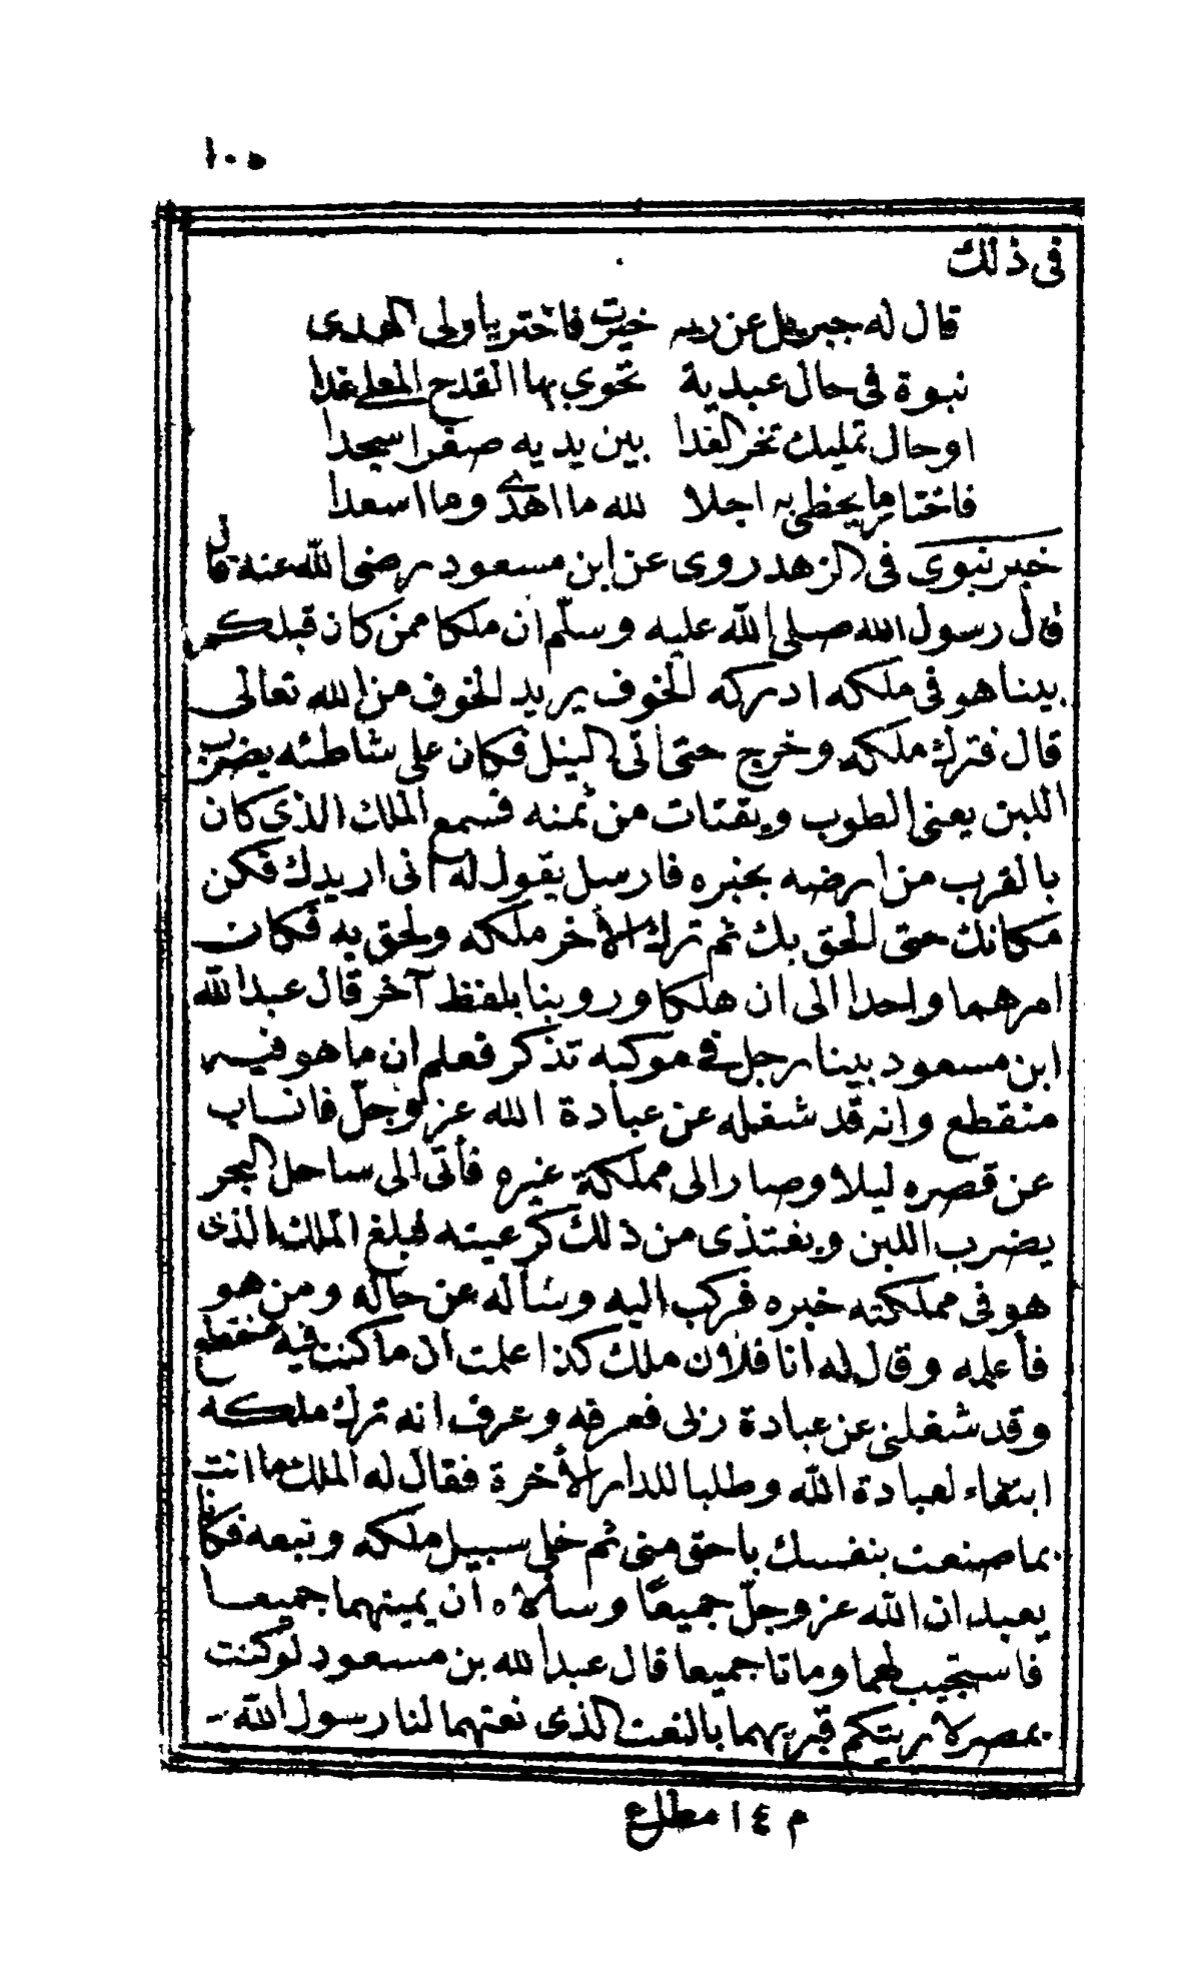 ١٠٥
فى ذلك
قال له جبريل عن ربه خيرت فاختر يا ولى الهدى
نبوة فى حال عبدية تحوي بها القدح المعلى غدا
او حال تمليك تخر العدا بين يديه صغرا سجدا
فاختار ما يحظى به اجلا لله ما اهدى وما اسعدا
خبر نبوي فى الزهد روى عن ابن مسعود رضى الله عنه قال
قال رسول الله صلى الله عليه وسلّم ان ملكا ممن كان قبلكم
بينا هو فى ملكه ادركه الخوف يريد الخوف من الله تعالى
قال فترك ملكه وخرج حتى اتى النيل فكان على شاطئه يضرب
اللبن يعنى الطوب ويقتات من ثمنه فسمع الملك الذي كان
بالقرب من ارضه بخبره فارسل يقول له انى اريدك فكن
مكانك حتى الحق بك ثم ترك الأخر ملكه ولحق به فكان
امرهما واحدا الى ان هلكا وروينا بلفظ آخر قال عبد الله
ابن مسعود بينا رجل في موكبه تذكر فعلم ان ما هو فيه
منقطع وانه قد شغله عن عبادة الله عز وجلّ فانساب
عن قصره ليلا وصار الى مملكة غيره فأتى الى ساحل البحر
يضرب اللبن ويغتذى من ذلك كرعيته فبلغ الملك الذى
هو فى مملكته خبره فركب اليه وسأله عن حاله ومن هو
فأعلمه وقال له انا فلان ملك كذا علمت ان ما كنت فيه منقطع
وقد شغلنى عن عبادة ربى فعرفه وعرف انه ترك ملكه
ابتغاء لعبادة الله وطلبا للدار الأخرة فقال له الملك ما انت
بما صنعت بنفسك باحق منى ثم خلى سبيل ملكه وتبعه فكانا
يعبدان الله عز وجلّ جميعًا وسألاه ان يميتهما جميعا
فاستجيب لهما وماتا جميعا قال عبد الله بن مسعود لو كنت
بمصر لاريتكم قبريهما بالنعت الذى نعتهما لنا رسول الله
م ١٤ مطلع